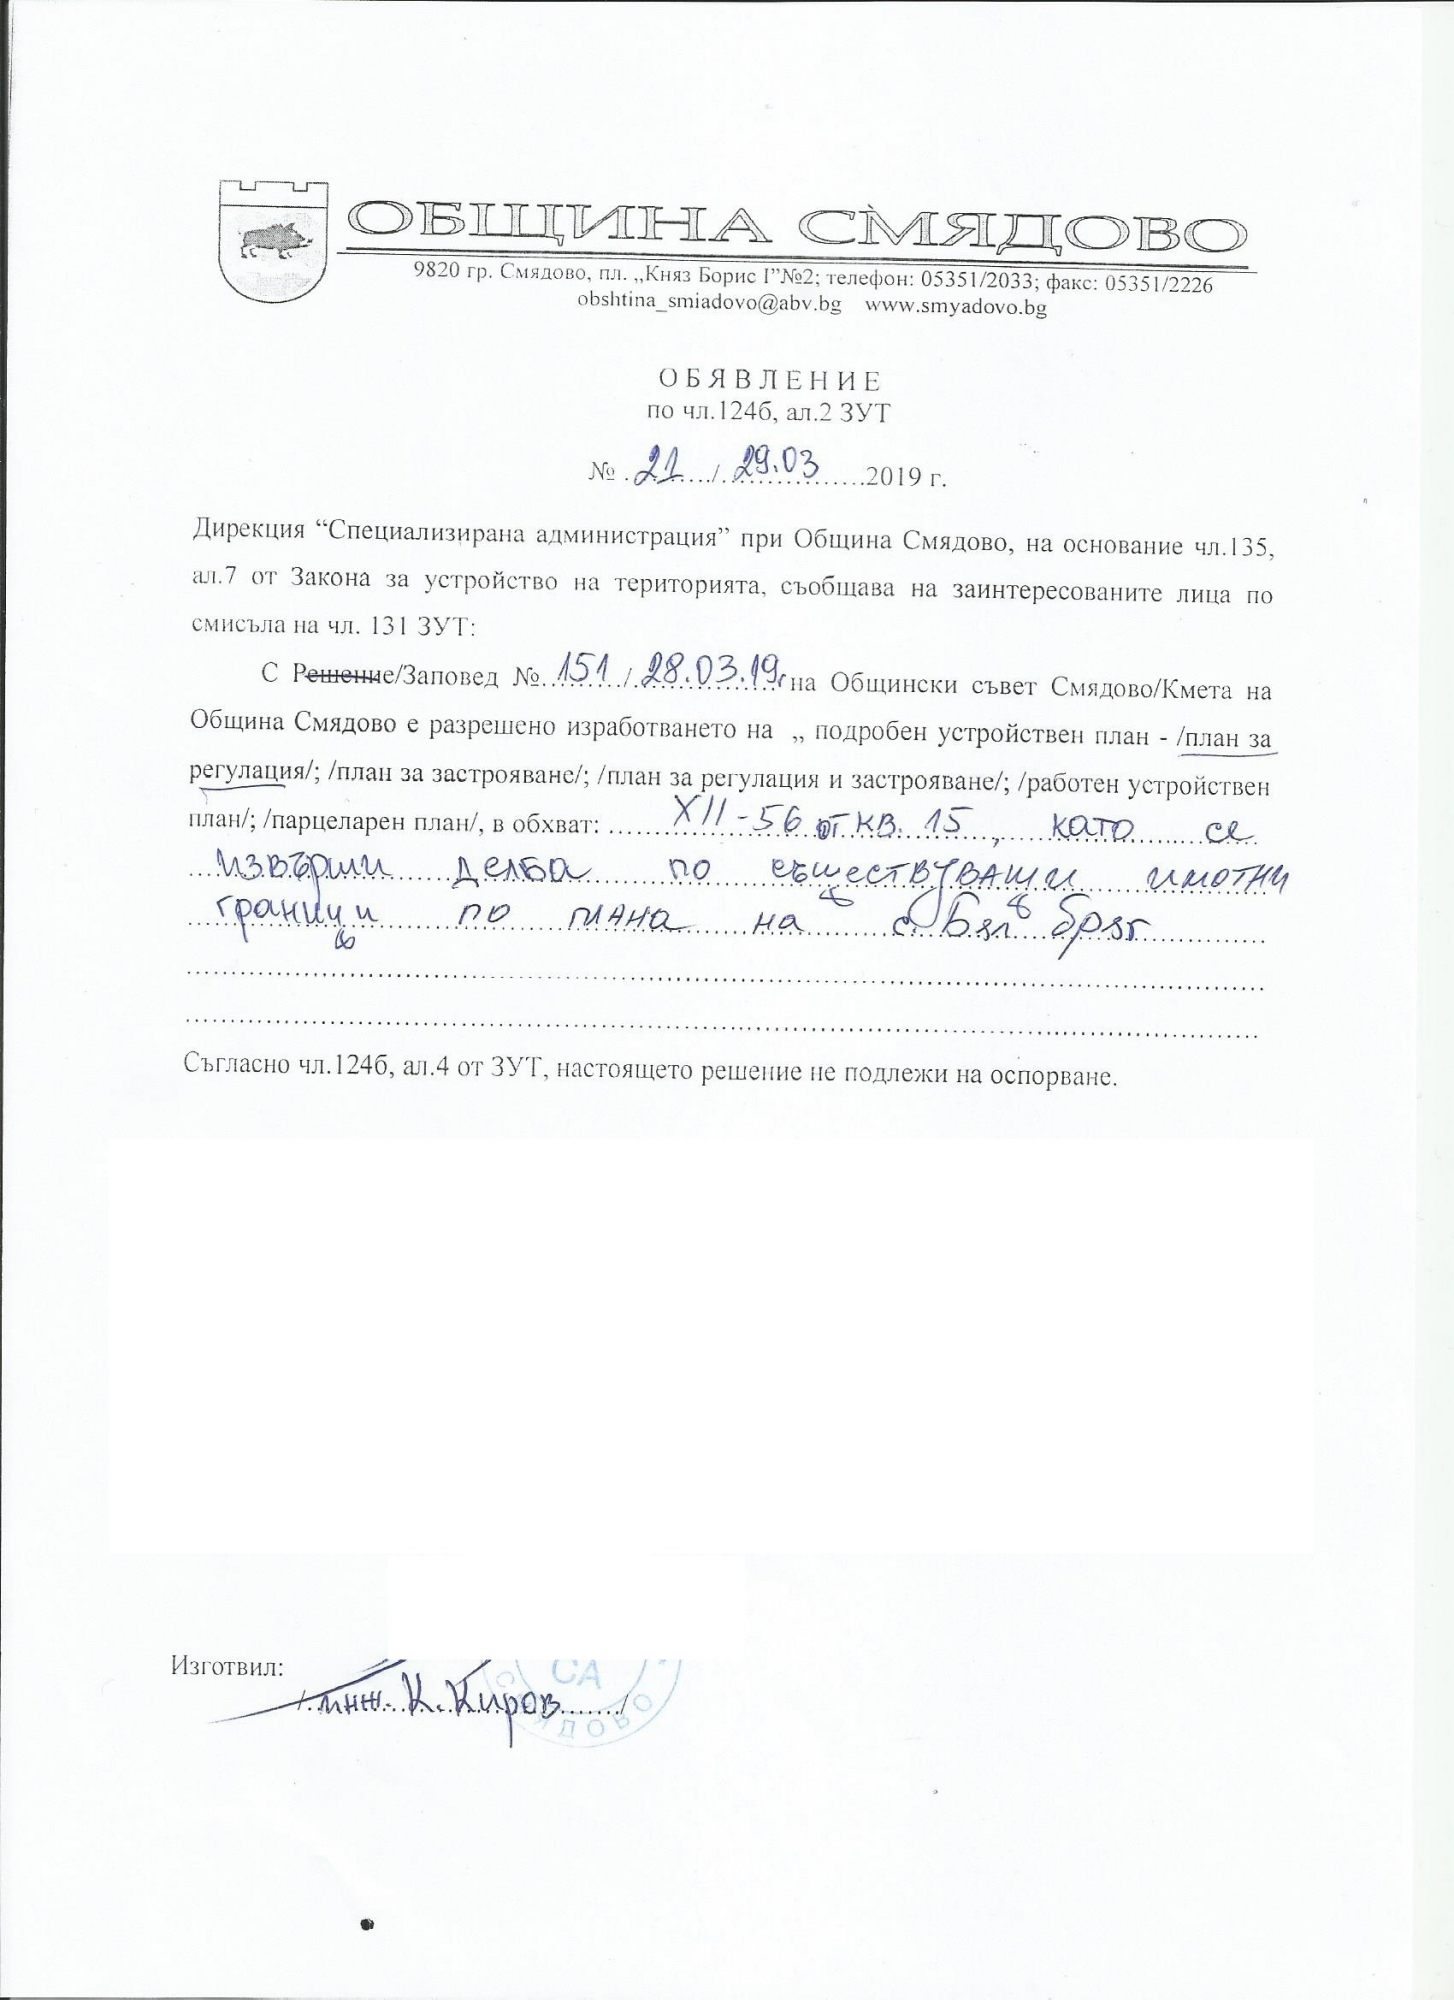 ОБЩИНА СМЯДОВО
9820 гр. Смядово, пл. „Княз Борис I”№2; телефон: 05351/2033; факс: 05351/2226
obshtina_smiadovo@abv.bg www.smyadovo.bg
О Б Я В Л Е Н И Е
по чл.124б, ал.2 ЗУТ
№ .21....../.29.03..........2019 г.
Дирекция “Специализирана администрация” при Община Смядово, на основание чл.135,
ал.7 от Закона за устройство на територията, съобщава на заинтересованите лица по
смисъла на чл. 131 ЗУТ:
С Решение/Заповед №.151../.28.03.19г на Общински съвет Смядово/Кмета на
Община Смядово е разрешено изработването на „ подробен устройствен план - /план за
регулация/; /план за застрояване/; /план за регулация и застрояване/; /работен устройствен
план/; /парцеларен план/, в обхват: ......XII-56 от кв. 15, като се
извърши делба по съществуващи имотни
граници по плана на с. Бял бряг
Съгласно чл.124б, ал.4 от ЗУТ, настоящето решение не подлежи на оспорване.
Изготвил:
/.инж. К. Киров......./
СА
СМЯДОВО